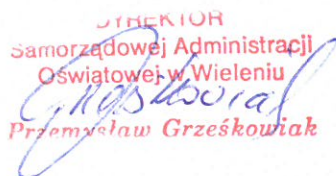 DYREKTOR
Samorządowej Administracji
Oświatowej w Wieleniu
Przemysław Grześkowiak